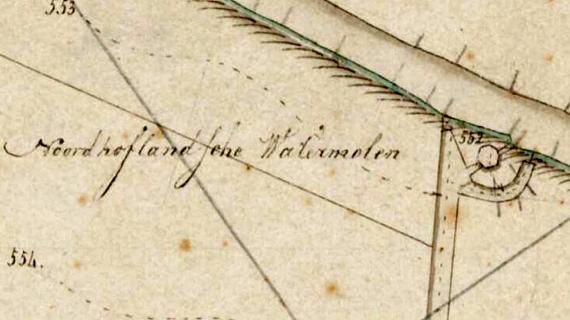 553
562
Noordhoflandsche Watermolen
554.